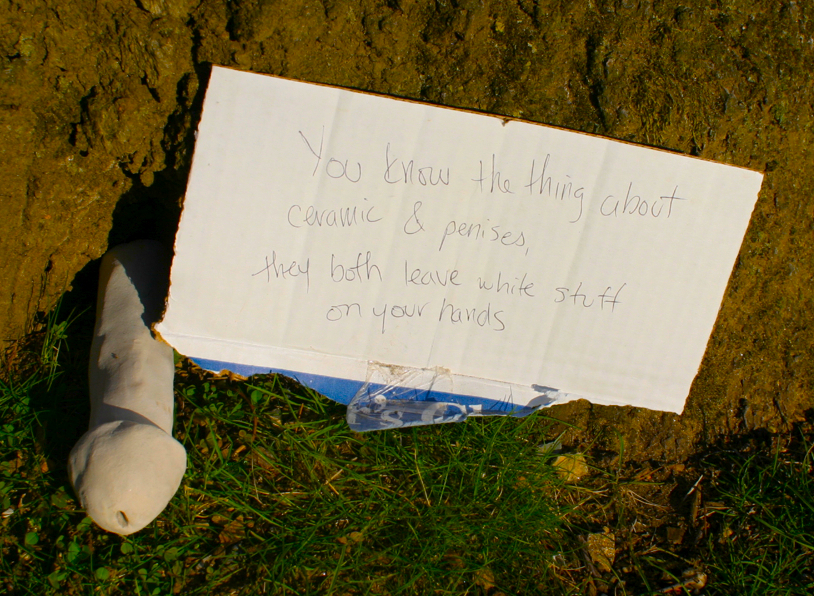 You know the thing about
ceramic & penises,
they both leave white stuff
on your hands